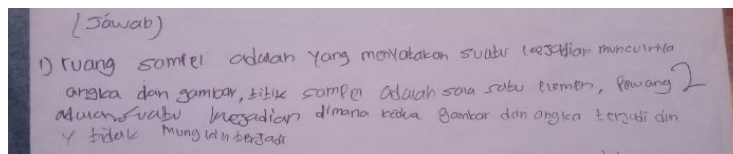 (Jawab)
1) ruang sampel adalah yang menyatakan suatu kesadian munculnla
angka dan gambar, titik sampel adalah sala satu elemen, Pewang 2
adalah suatu kesadian dimana kedua gambar dan angka terjadi din
y tidak mungkin terjadi